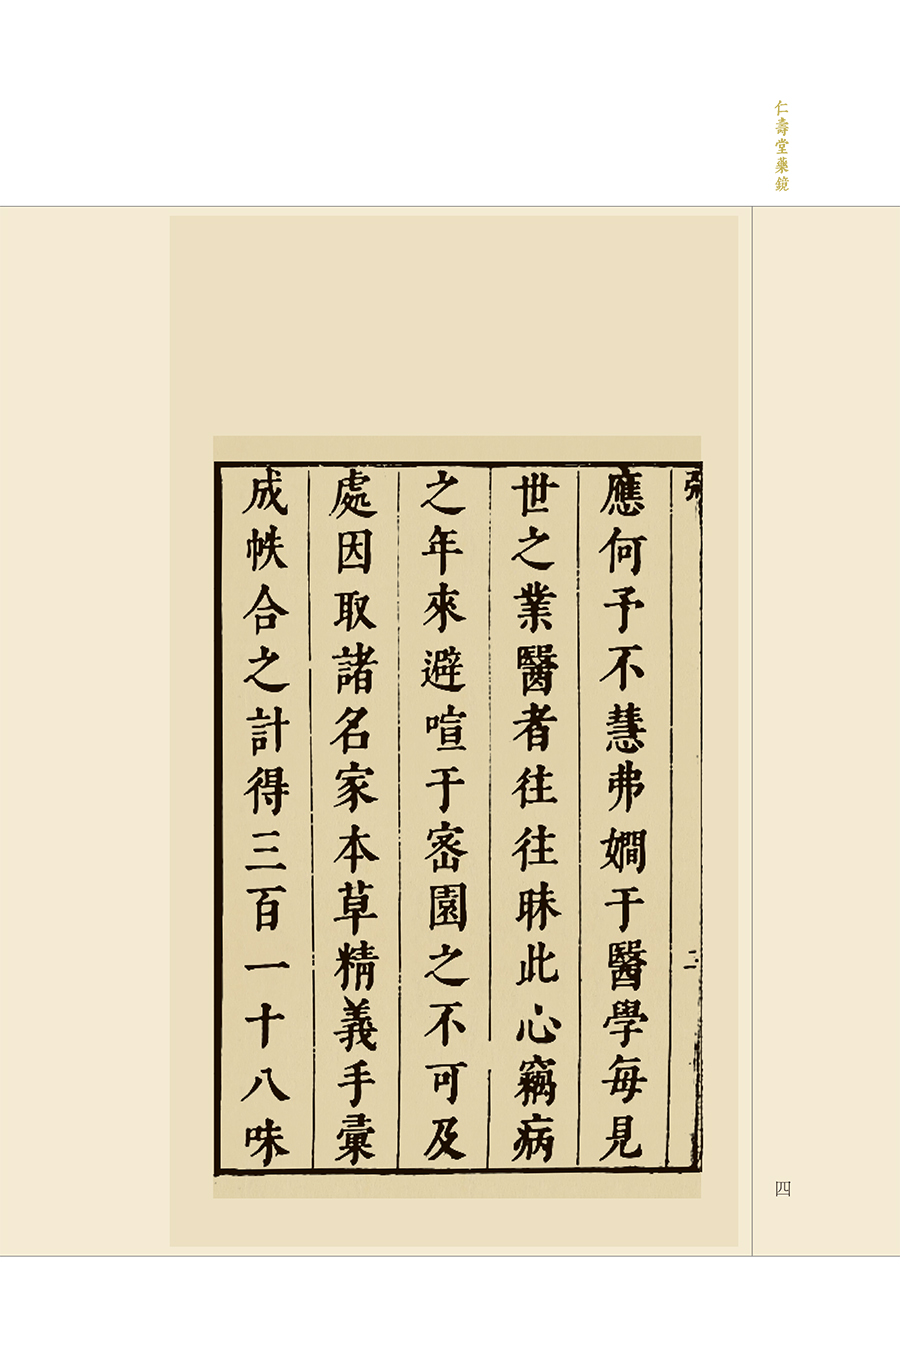 仁壽堂藥鏡
二
應何予不慧弗嫺于醫學每見
世之業醫者往往昧此心竊病
之年來避喧于密園之不可及
處因取諸名家本草精義手彙
成帙合之計得三百一十八味
四